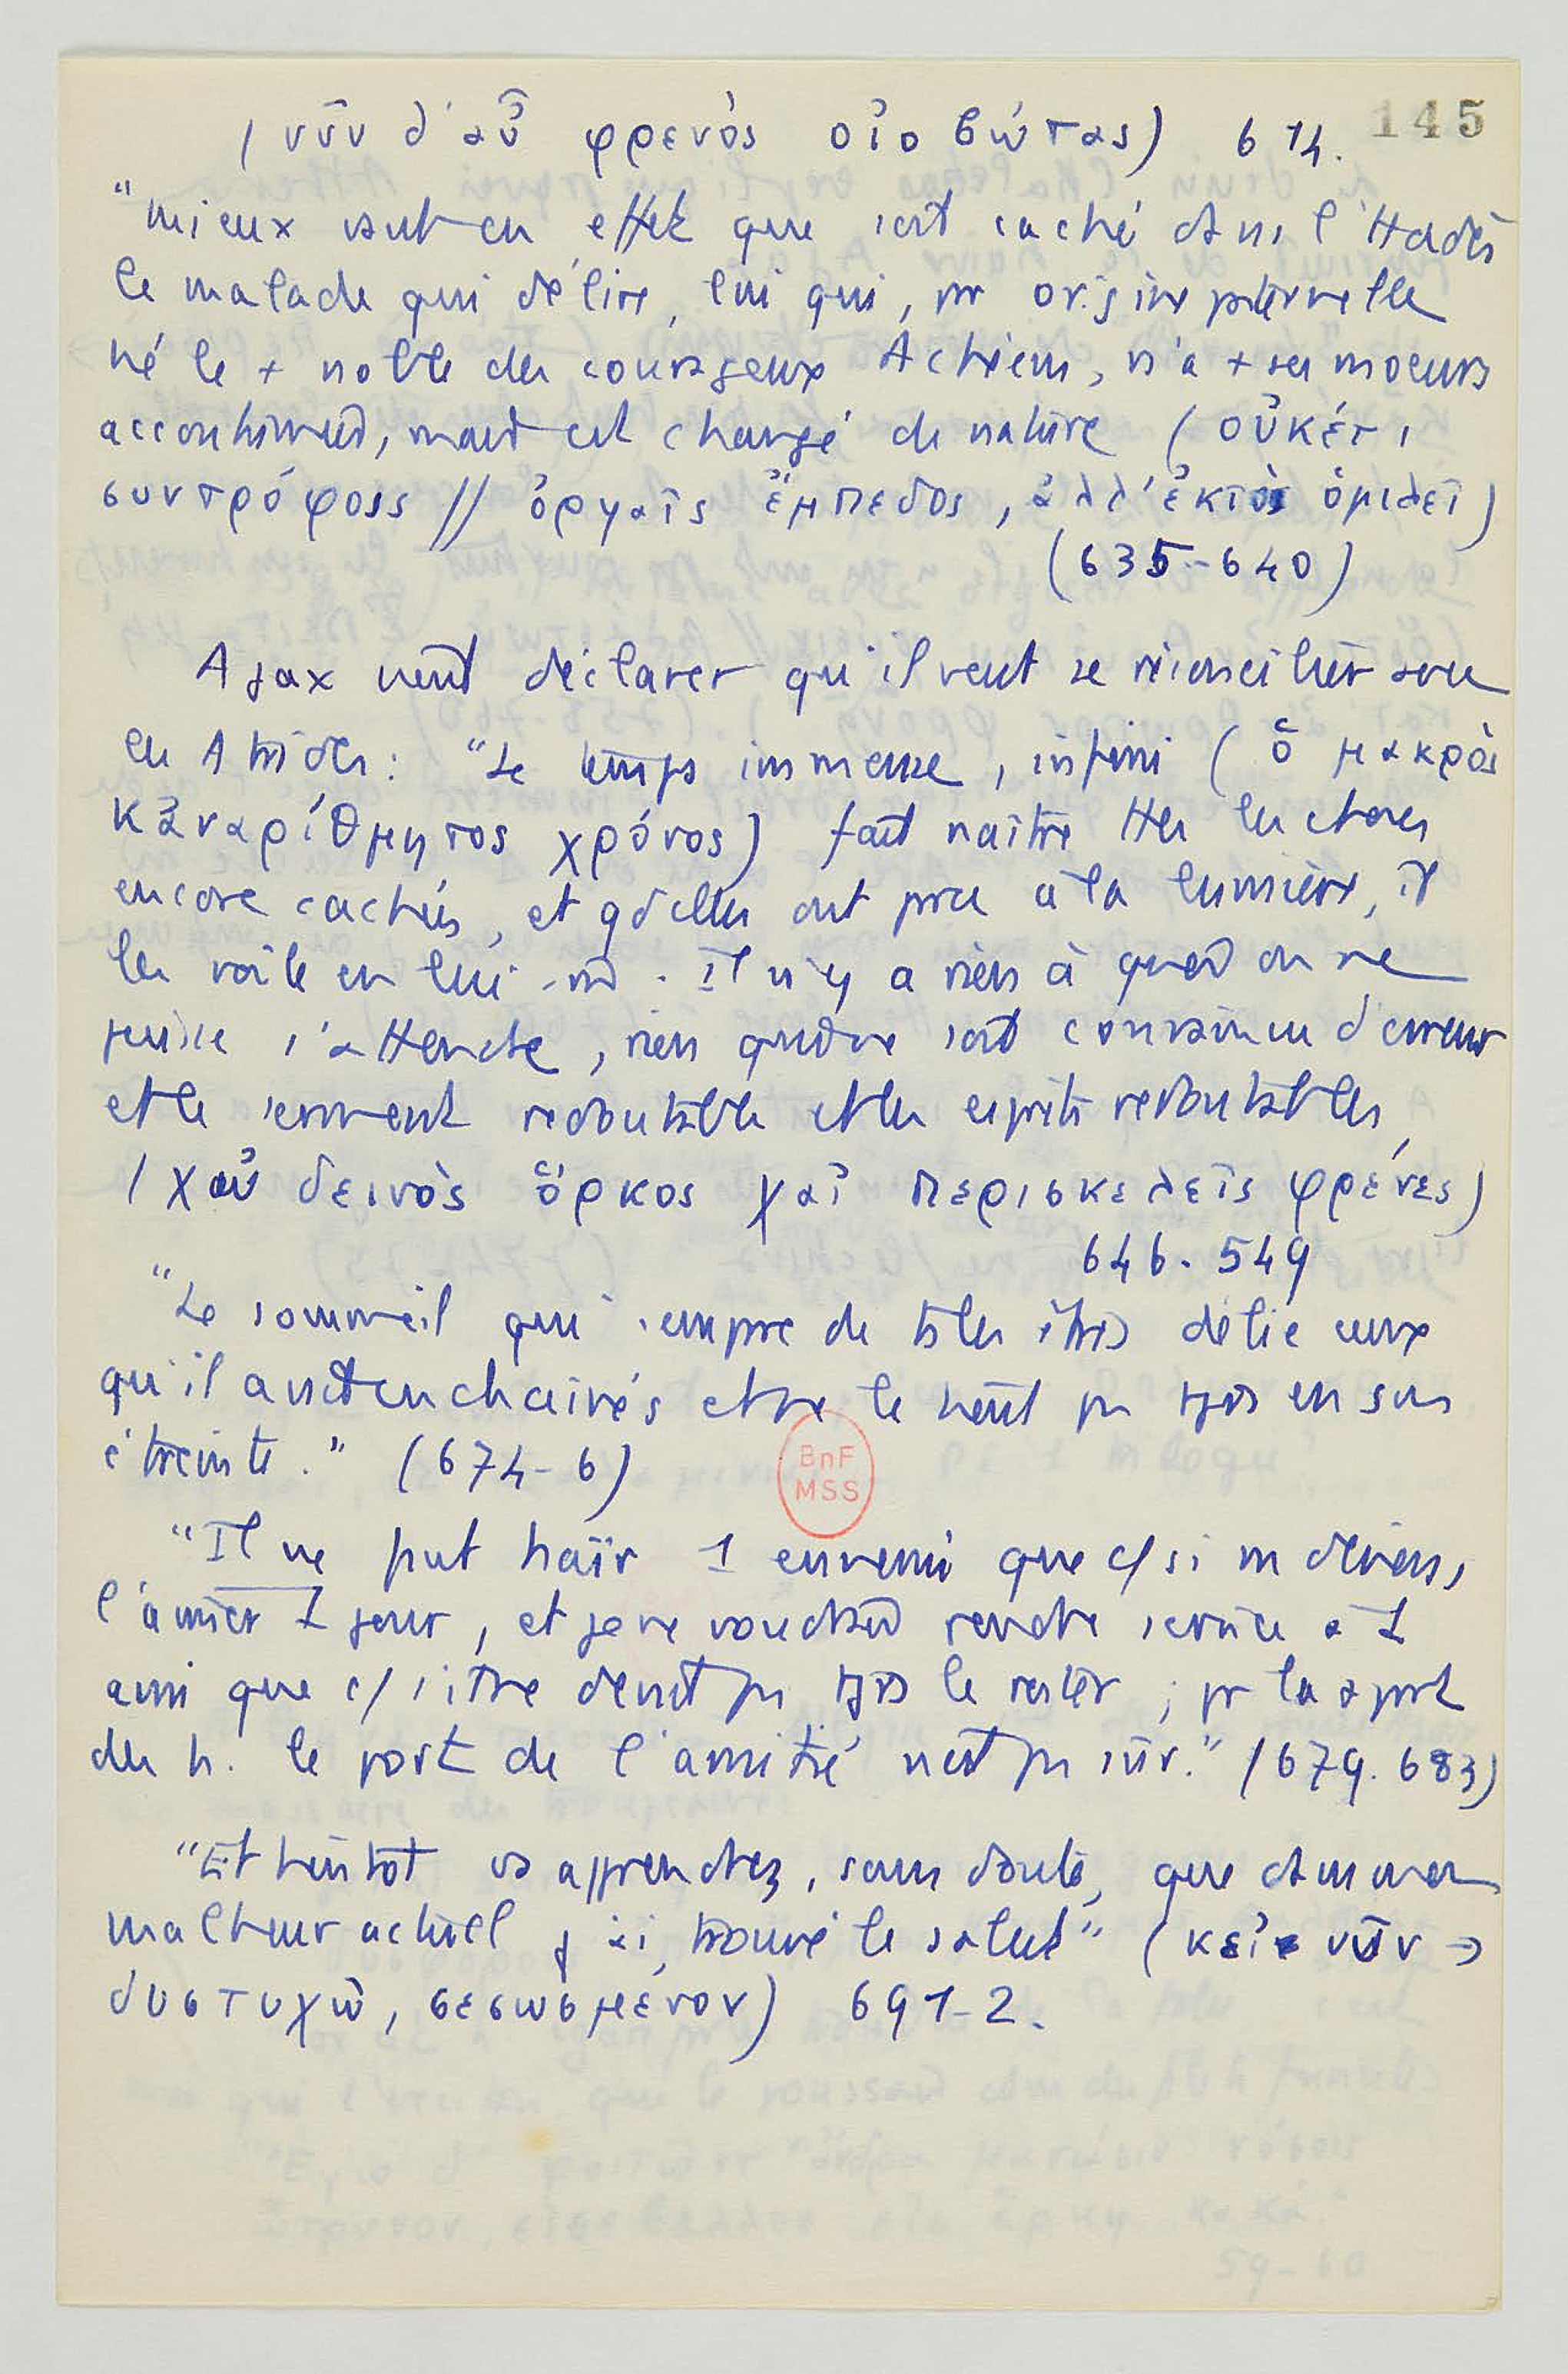 145
(νῦν δ'αὖ φρενὸς οἰοβώτας) 614.
"Mieux vaut en effet que soit caché dans l'Hadès
le malade qui délire, lui qui, par origine paternelle
né le + noble des courageux Achéens, n'a + ses moeurs
accoutumées, mais est changé de nature (οὐκέτι
συντρόφοις // ὀργαῖς ἔμπεδος, ἀλλ'ἐκτὸς ὁμιλεῖ)
(635-640)
Ajax vient déclarer qu'il veut se réconcilier avec
les Atrides : "Le temps immense, infini (ὁ μακρὸς
κἀναρίθμητος χρόνος) fait naître ttes les choses
encore cachées, et qd elles ont paru à la lumière, il
les voile en lui-m. Il n'y a rien à quoi on ne
puisse s'attendre, rien qui ne soit convaincu d'erreur
et le serment redoutable et les esprits redoutables,
(χαὐ δεινὸς ὅρκος χαἰ περισκελεῖς φρένες)
646-549
"Le sommeil qui s'empare de ts les êtres délie ceux
qu'il avait enchaînés et ne le tient pas tjrs en son
étreinte." (674-6)
"Il ne faut haïr 1 ennemi que c/ si on devais,
l'aimer 1 jour, et je ne voudrais rendre service à 1
ami que c/ s'il ne devait pas tjrs le rester ; pr la plupart
des h. le port de l'amitié n'est pas sûr." (679-683)
"Et bientôt vs apprendrez, sans doute, que dans mon
malheur actuel j'ai trouvé le salut" (κεἰ νῦν →
δυστυχῶ, σεσωσμένον) 691-2.
BnF
MSS